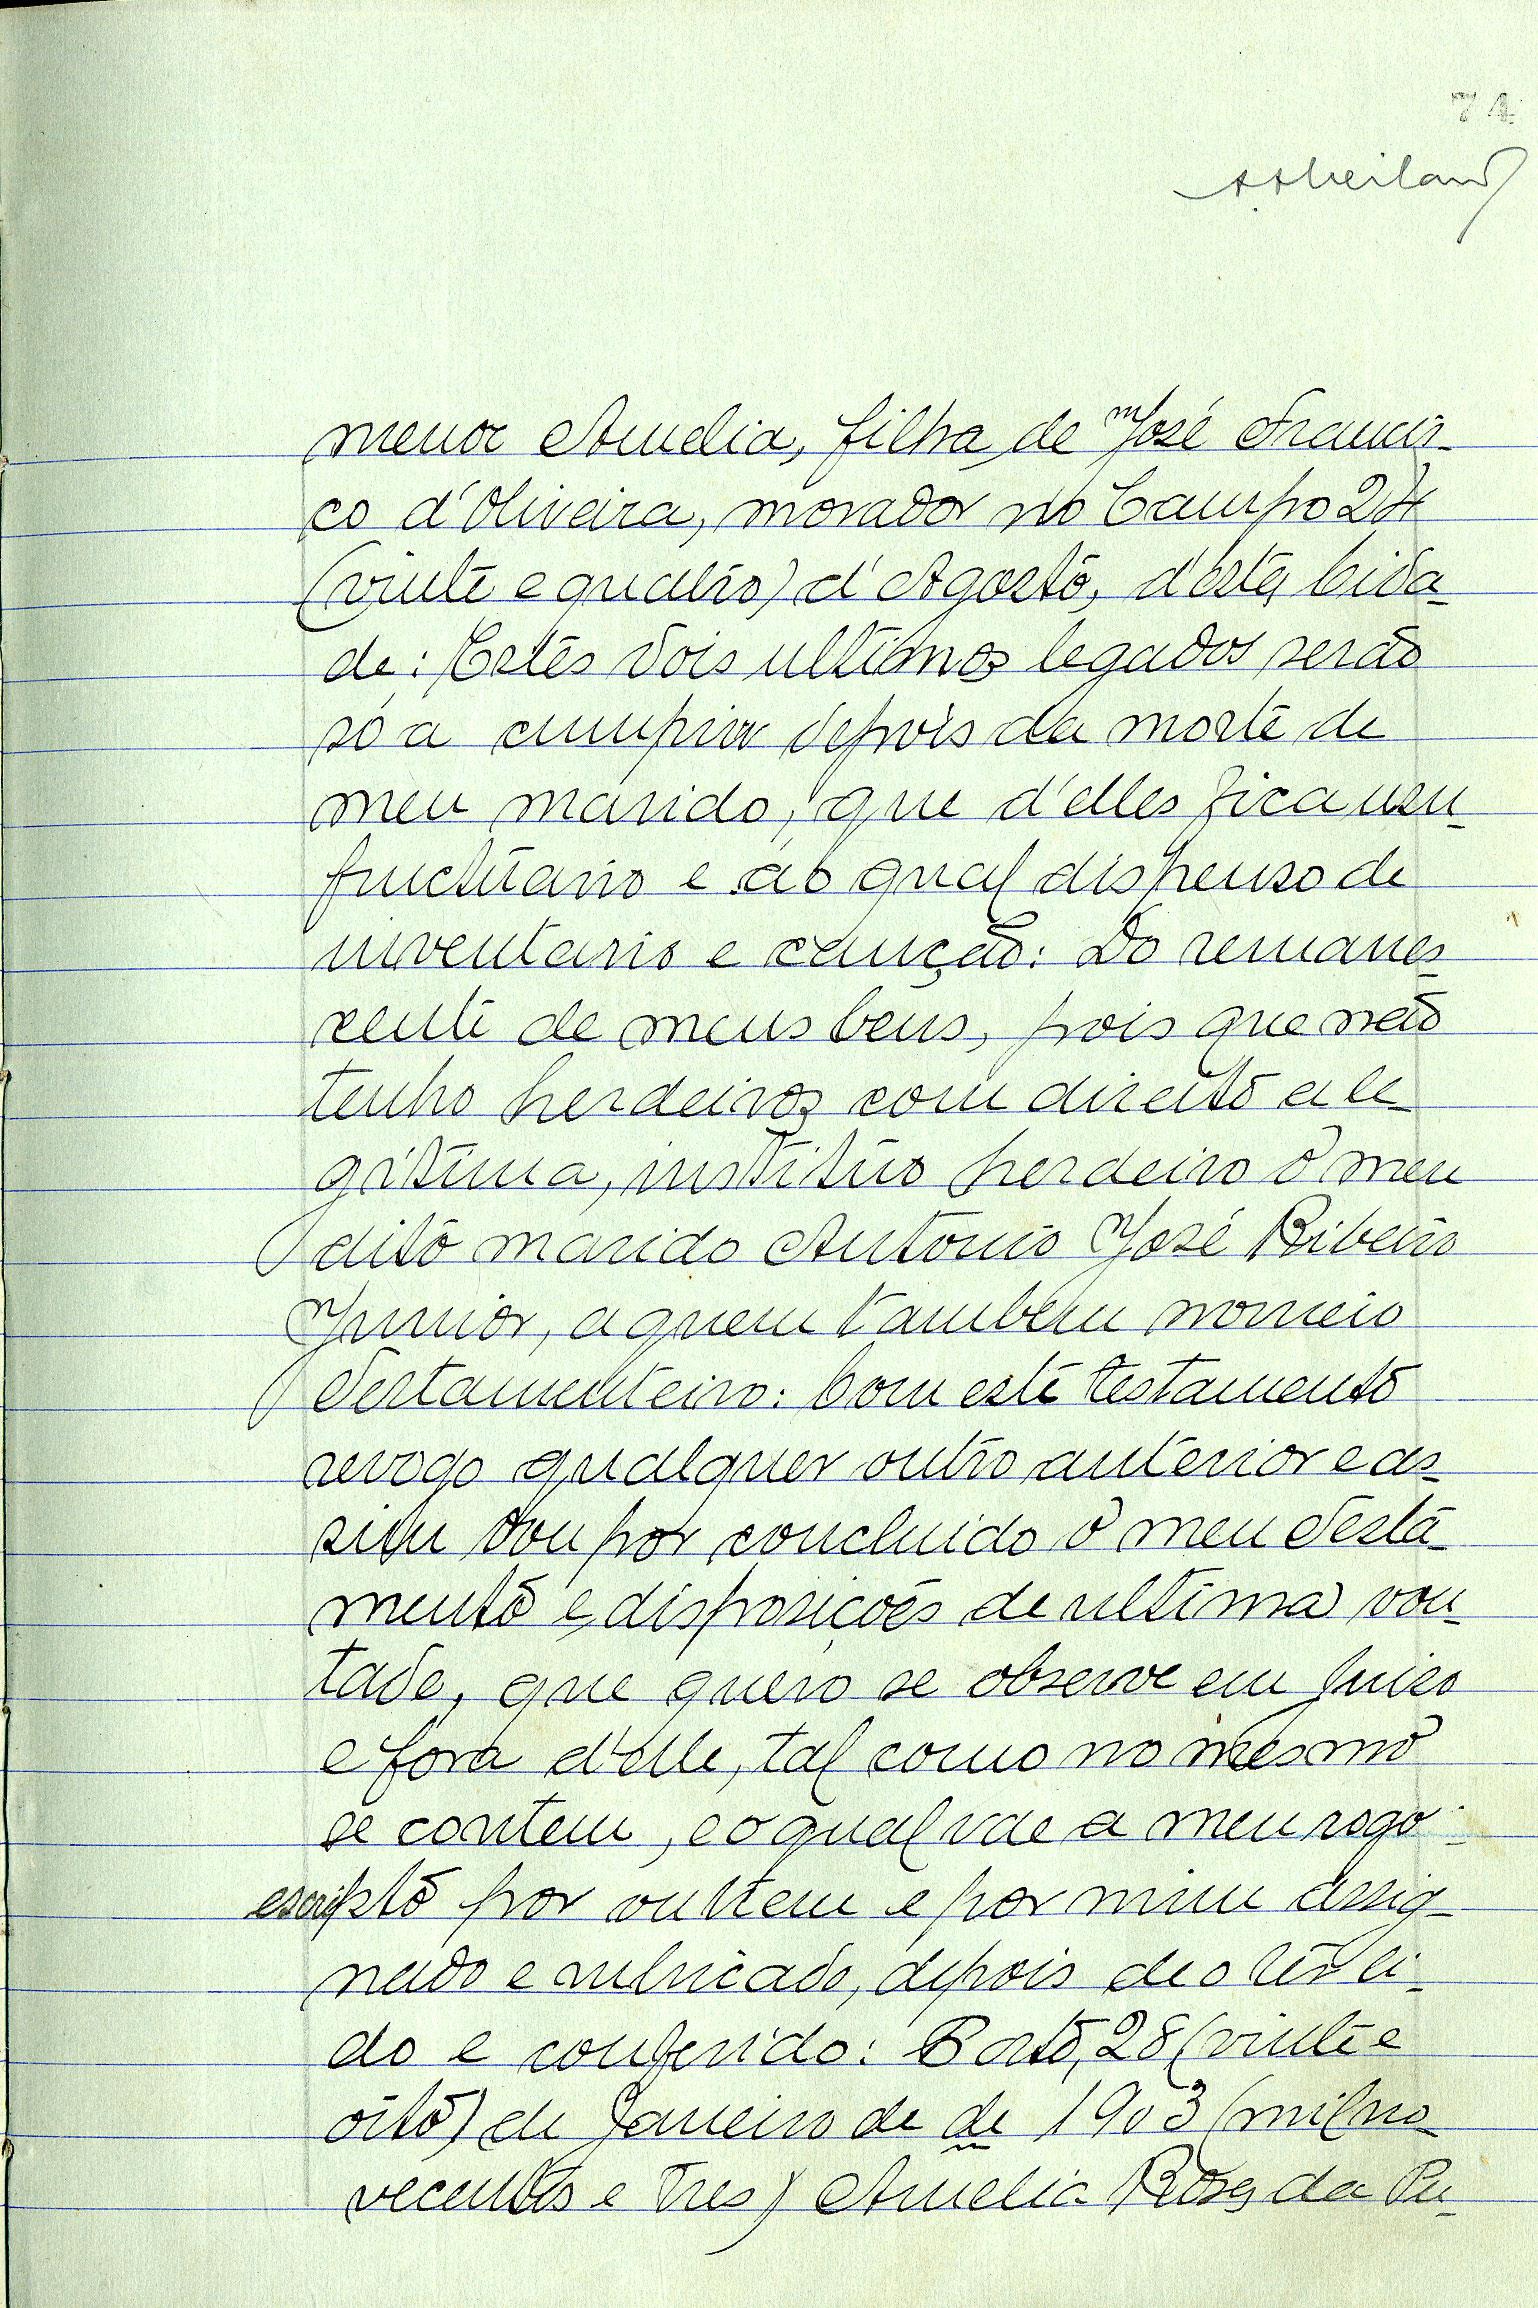 74
menor Amelia, filha de José Francis-
co d'Oliveira, morador no Campo 24
(vinte e quatro) d'Agosto, d'esta Cida-
de: Estes dois ultimos legados serão
só a cumprir depois da morte de
meu marido, que d'elles fica usu-
fructuario e ao qual dispenso de
inventario e caução: Do remanes-
cente de meus bens, pois que não
tenho herdeiros com direito a le-
gitima, instituo herdeiro o meu
dito marido Antonio José Ribeiro
Junior, a quem tambem nomeio
Testamenteiro: Com este testamento
revogo qualquer outro anterior e as-
sim dou por concluido o meu Testa-
mento e disposições de ultima von-
tade, que quero se observe em Juizo
e fora d'elle, tal como no mesmo
se contem, e o qual vae a meu rogo
escripto por outrem e por mim assig-
nado e rubricado, depois de o ter li-
do e conferido: Porto, 28 (vinte e
oito) de Janeiro de de 1903 (mil no-
vecentos e tres) Amelia Rosa da Pu-